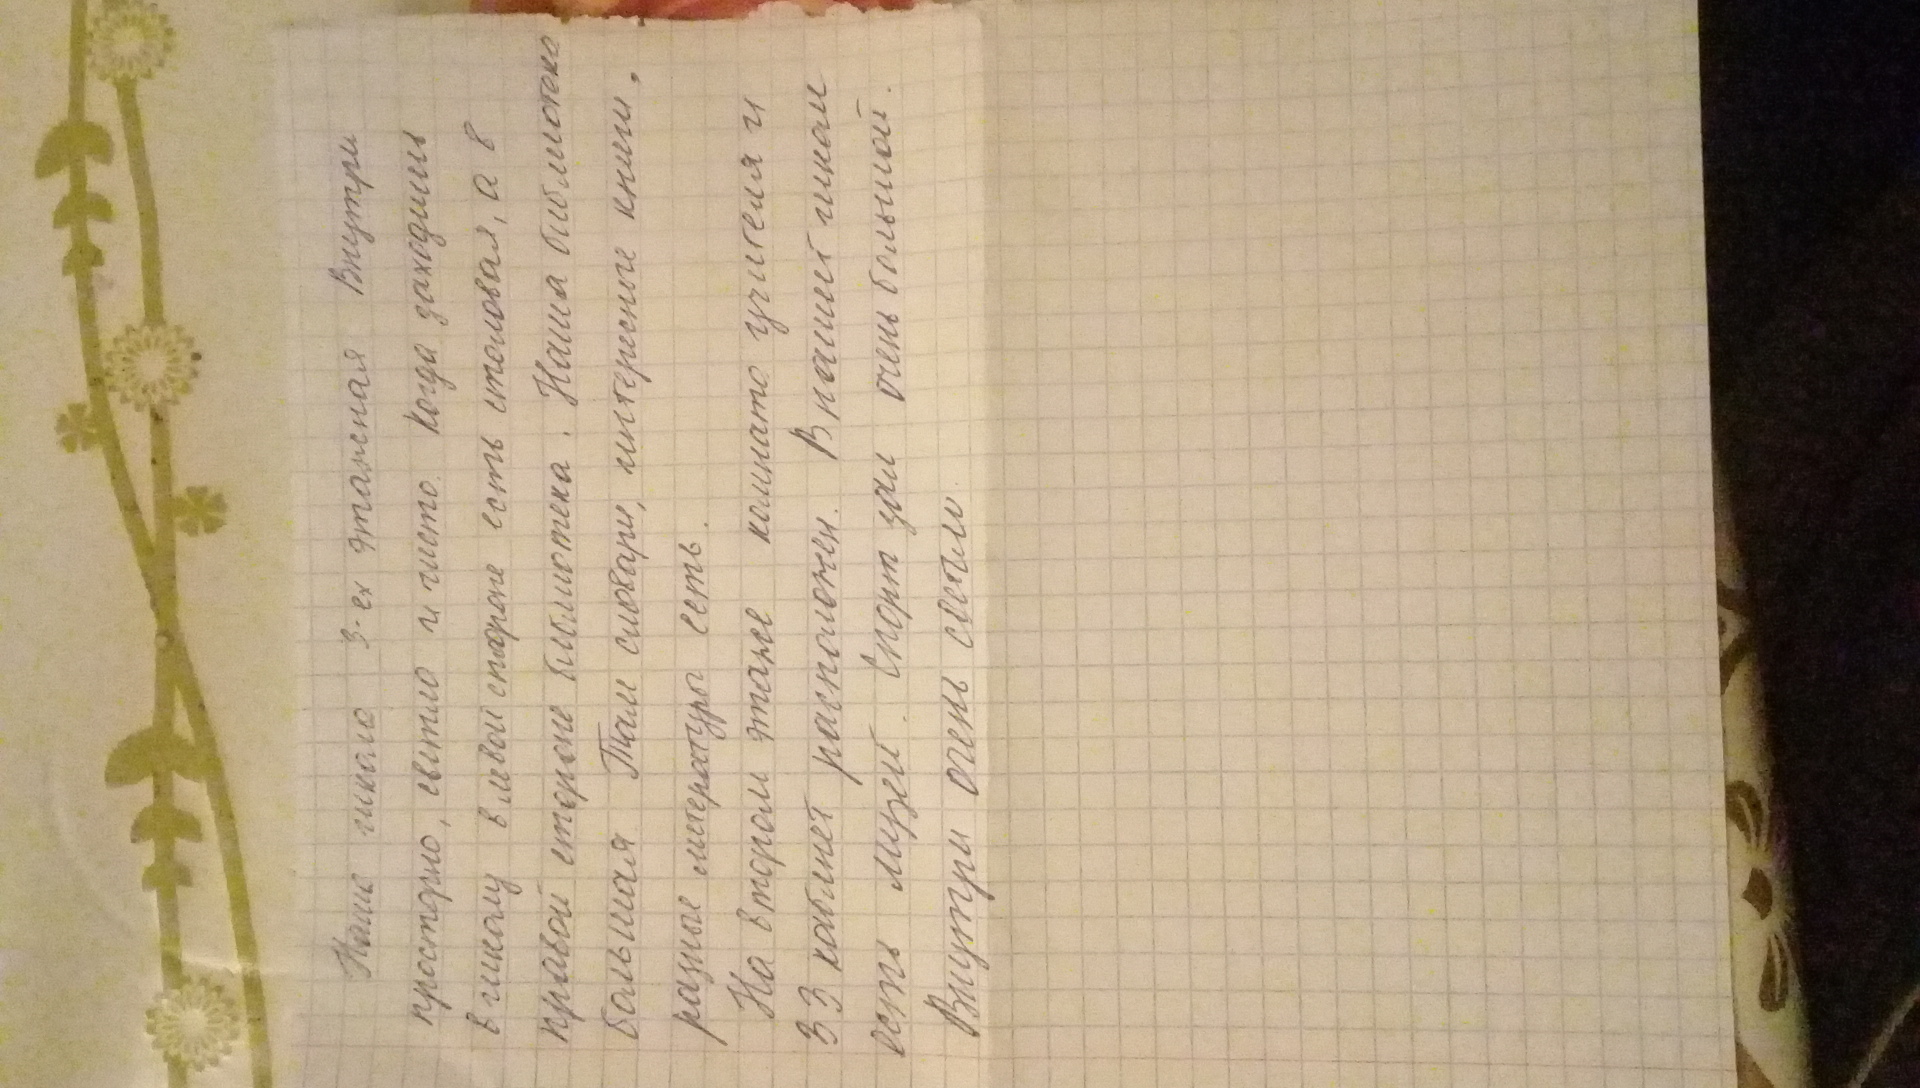 Наша школа 3-ех этажная Внутри
просторно, светло и чисто. Когда заходишь
в школу в левой стороне есть столовая, а в
правой стороне библиотека. Наша библиотека
большая. Там словари, интересные книги,
разные литературы есть.
На втором этаже комната учителя и
33 кабинет расположен. В нашей школе
есть музей. Спорт зал очень большой.
Внутри очень светло.